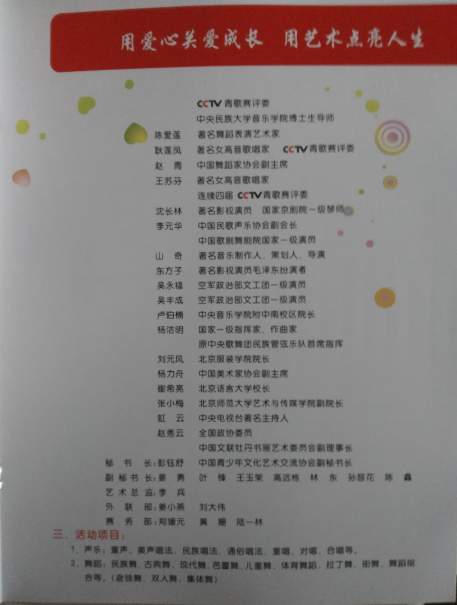 用爱心关爱成长 用艺术点亮人生
CCTV青歌赛评委
中央民族大学音乐学院博士生导师
陈爱莲 著名舞蹈表演艺术家
耿莲凤 著名女高音歌唱家 CCTV青歌赛评委
赵青 中国舞蹈家协会副主席
王苏芬 著名女高音歌唱家
连续四届CCTV青歌赛评委
沈长林 著名影视演员 国家京剧院一级琴师
李元华 中国民歌声乐协会副会长
中国歌剧舞剧院国家一级演员
山奇 著名音乐制作人、策划人、导演
东方子 著名影视演员毛泽东扮演者
吴永福 空军政治部文工团一级演员
吴丰成 空军政治部文工团一级演员
卢伯楠 中央音乐学院附中南校区院长
杨洁明 国家一级指挥家、作曲家
原中央歌舞团民族管弦乐队首席指挥
刘元风 北京服装学院院长
杨力舟 中国美术家协会副主席
崔希亮 北京语言大学校长
张小梅 北京师范大学艺术与传媒学院副院长
虹云 中央电视台著名主持人
赵秀云 全国政协委员
中国文联牡丹书画艺术委员会副理事长
秘书长:彭钰舒 中国青少年文化艺术交流协会副秘书长
副秘书长:姜勇 叶锋 王玉荣 高远栋 林东 孙晋花 陈鑫
艺术总监:李兵
外联部:姜小燕 刘大伟
赛务部:郑媛元 黄姗 陆一林
三、活动项目:
1、声乐:童声、美声唱法、民族唱法、通俗唱法、重唱、对唱、合唱等。
2、舞蹈:民族舞、古典舞、现代舞、芭蕾舞、儿童舞、体育舞蹈、拉丁舞、街舞、舞蹈组
合等。(独舞、双人舞、集体舞)